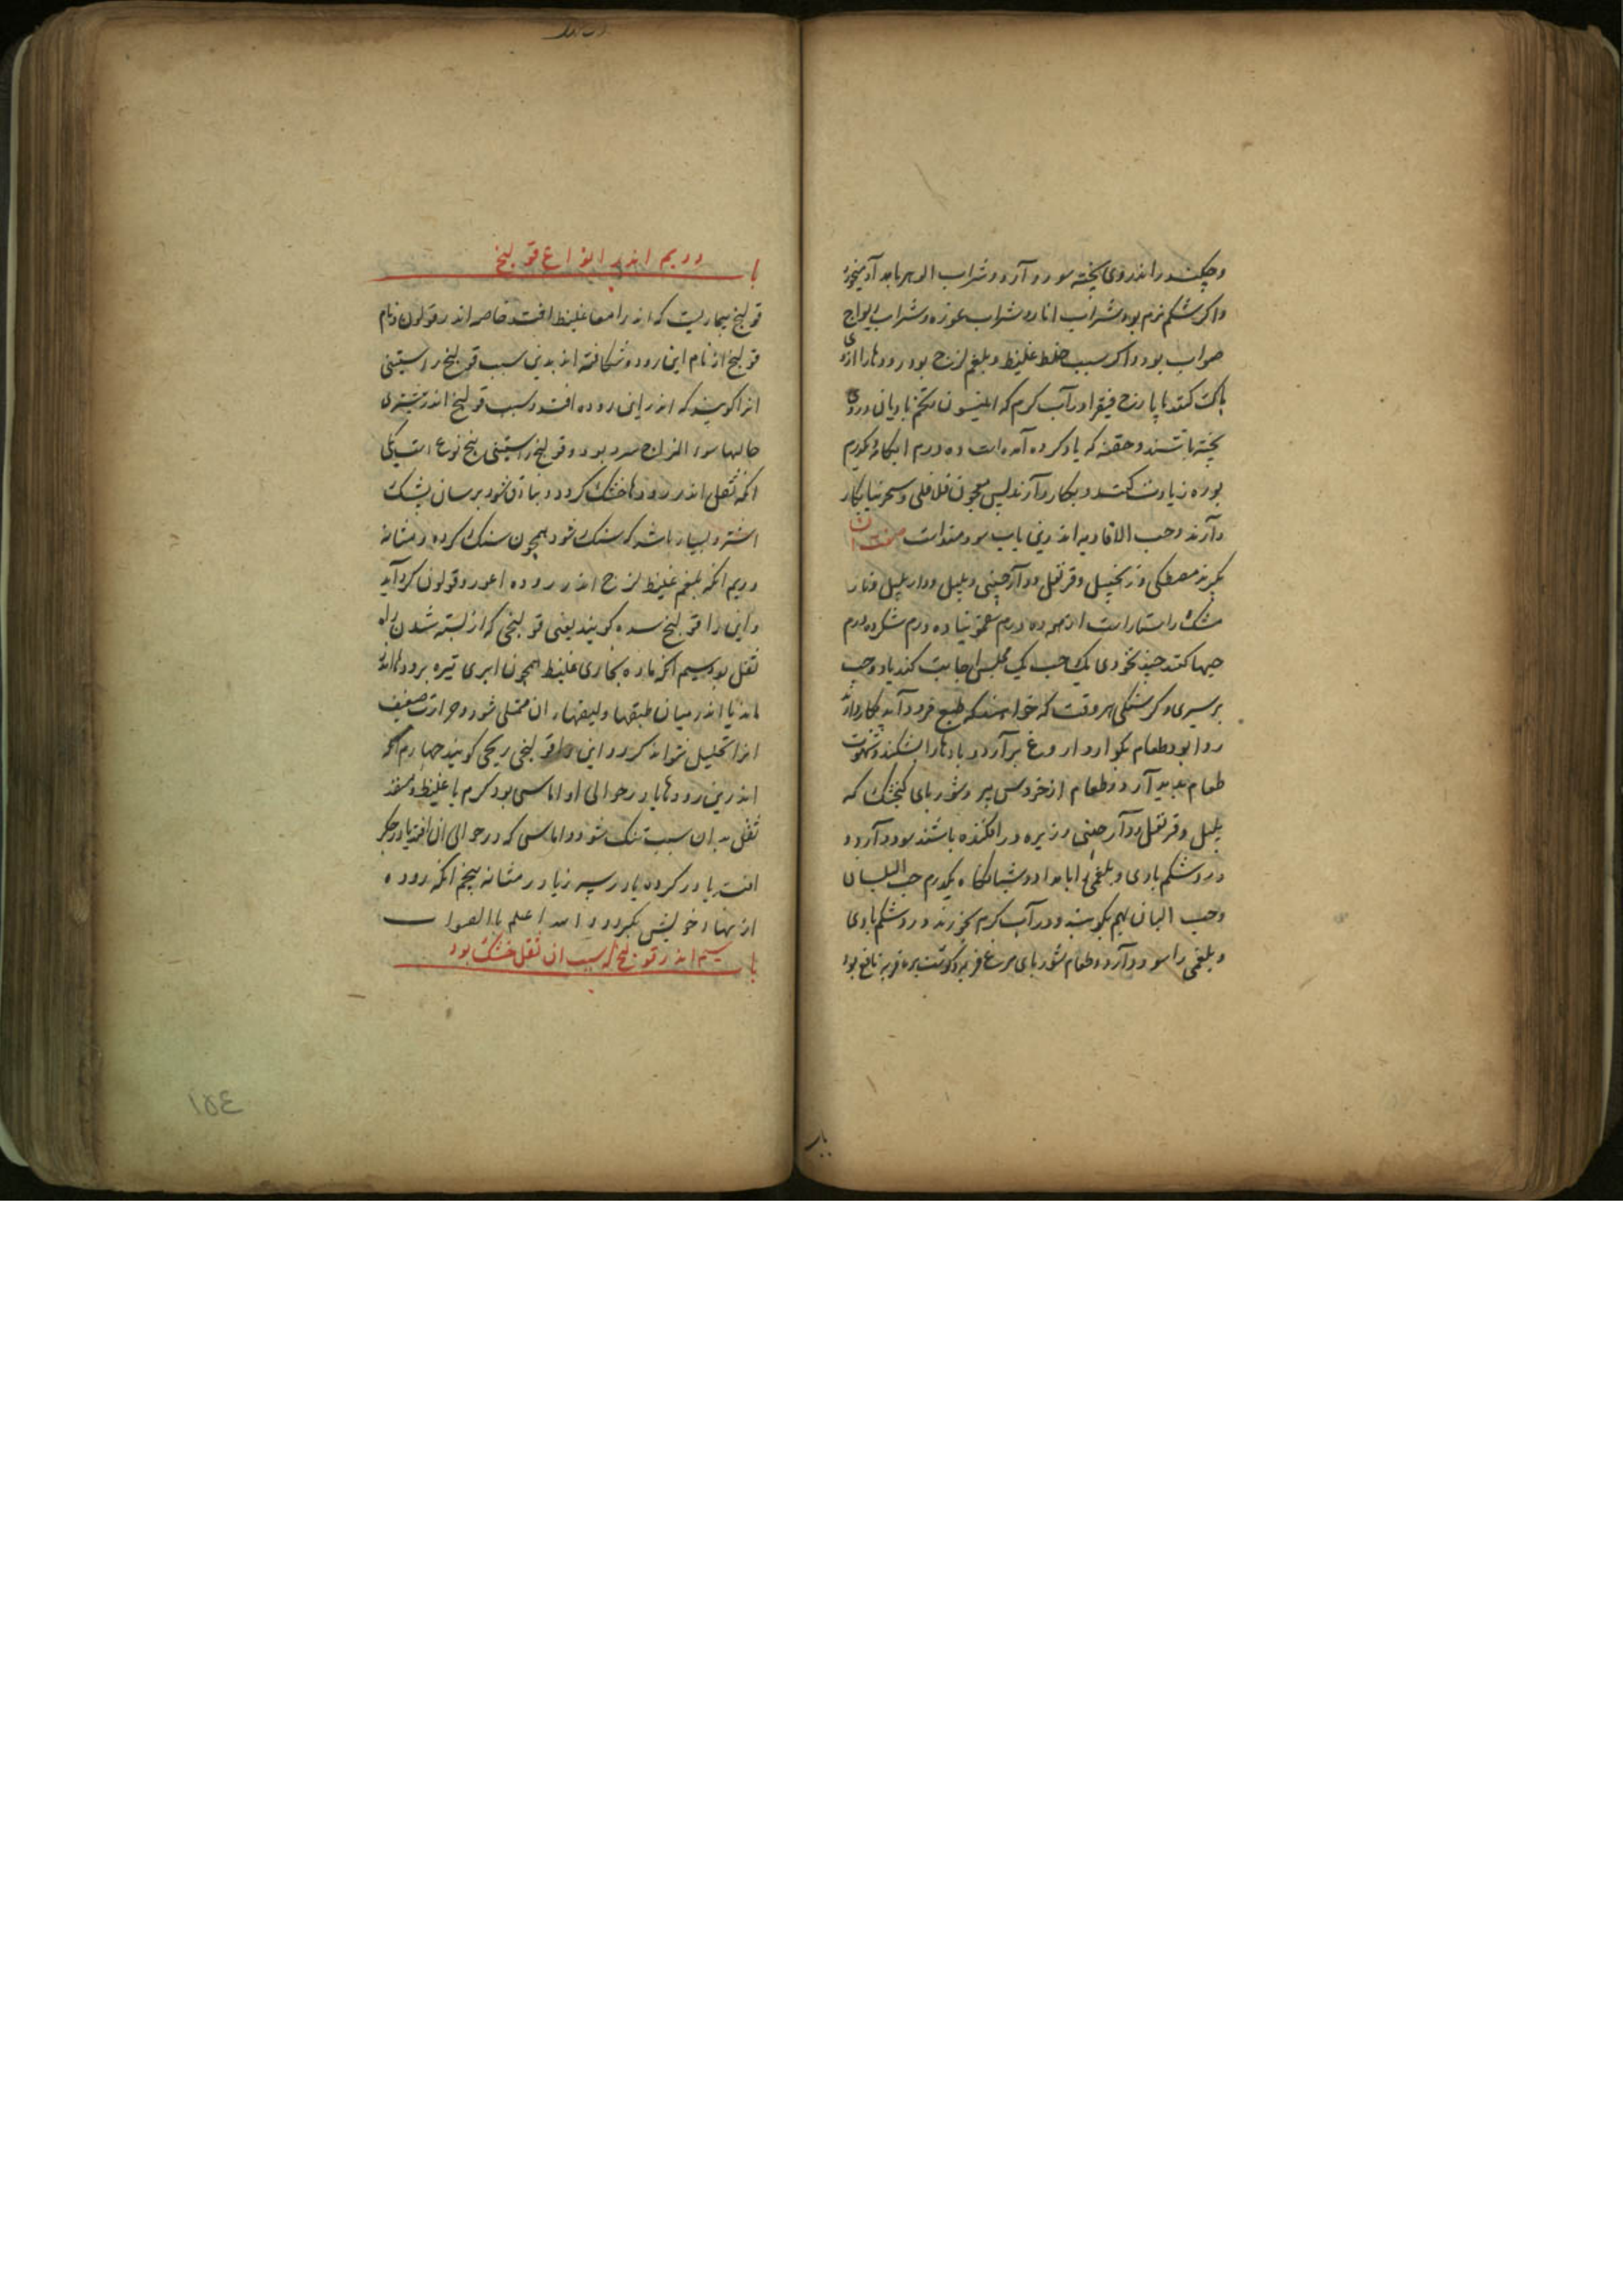 و چکندر اندروی پخته سود دارد و شراب الو هر بامداد میخورد
و اکر شکم نرم بود شراب انار و شراب غوره و شراب ریواج
صواب بود و اکر سبب خلط غلیظ و بلغم لزج بود رودها را ازوی
پاک کنند بایارج فیقرا و آب کرم که انیسون و تخم بادیان دروی
پخته باشند و حقنه که یاد کرده آمده است ده درم ابکامه یکدرم
بوره زیادت کنند و بکار دارند پس معجون فلافلی و سجزنیا بکار
دارند و حب الافاویه اندرین باب سودمند است صفت ان
بکیرند مصطکی و زنجبیل و قرنفل و دارچینی و پلپل و دارپلپل
مشک راستاراست از همه ده درم سقمونیا ده درم شکر ده درم
حبها کنند چند نخودی یک حب یک مجلس اجابت کند یا دو حب
بر سیری و کرسنکی هر وقت که خواهند که طبع فرود آید بکار دارند
روا بود طعام بکوارد و اروغ برآرد و بادها را بشکند و شهوت
طعام پدید آرد و طعام از خروس پیر و شوربای کنجشک که
پلپل و قرنفل و دارچینی و زیره در افکنده باشند سود دارد و
درد شکم بادی و بلغمی را بامداد و شبانکاه یکدرم حب البلسان
و حب البان بهم بکوبند و در آب کرم بخورند درد شکم بادی
و بلغمی را سود دارد و طعام شوربای مرغ فربه و کوشت بره فربه نافع بود
باب دویم اندر انواع قولنج
قولنج بیماریست که اندر امعا غلیظ افتد خاصه اندر قولون و نام
قولنج از نام این روده شکافته اند بدین سبب قولنج راستینی
انرا کویند که اندر این روده افتد و سبب قولنج اندر بیشتری
حالها سوء المزاج سرد بود و قولنج راستینی پنج نوع است یکی
انکه ثفل اندر رودها خشک کردد و بنادق شود بر سان پشک
اشتر و بسیار باشد که سنک شود همچون سنک کرده و مثانه
دویم انکه بلغم غلیظ لزج اندر روده اعور و قولون کرد آید
و این را قولنج سده کویند یعنی قولنجی که از بسته شدن راه
ثفل بود سیم انکه ماده بخاری غلیظ همچون ابری تیره برودها اندر
ماند یا اندر میان طبقها و لیفهاء ان ممتلی شود و حرارت ضعیف
انرا تحلیل نتواند کرد و این را قولنجی ریحی کویند چهارم انکه
اندرین رودها یا در حوالی او اماسی بود کرم یا غلیظ و منفذ
ثفل بدان سبب تنک شود و اماسی که در حوالی ان افتد یا در جکر
افتد یا در کرده یا در سپرز یا در مثانه پنجم انکه روده
از نهاد خویش بکردد و الله اعلم بالصواب
باب سیم اندر قولنج که سبب ان ثفل خشک بود
١٥٤